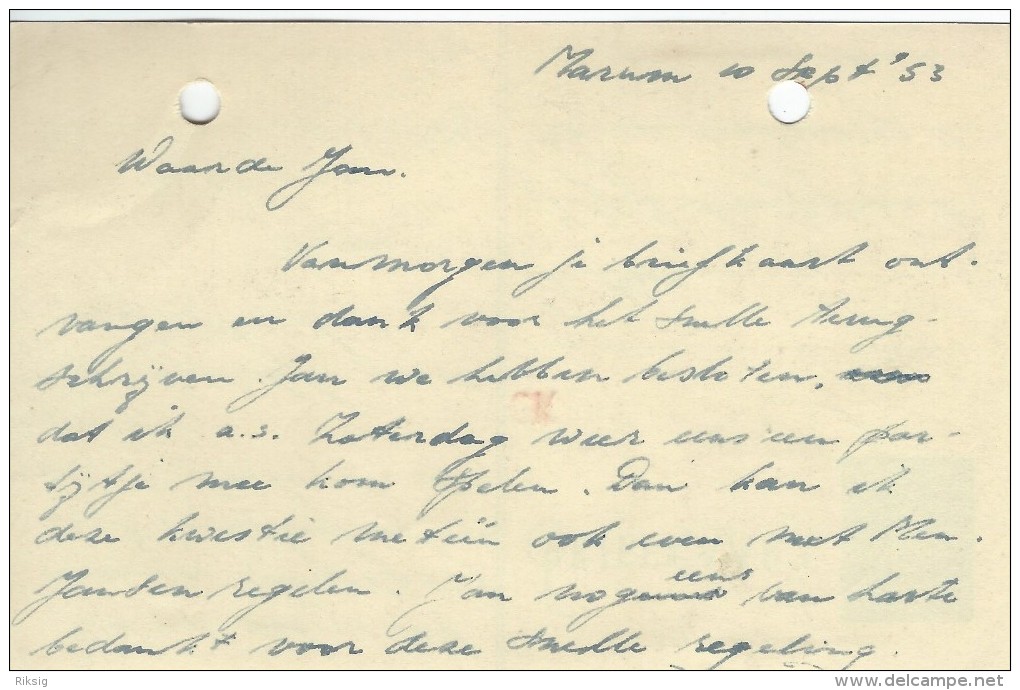 Marum 10 Sept '53
Waarde Jan.
Vanmorgen je briefkaart ont-
vangen en dank voor het snelle terug-
schrijven. Jan we hebben besloten,
dat ik a.s. Zaterdag weer eens een par-
tijtje mee kom spelen. Dan kan ik
deze kwestie meteen ook even met Men.
Jansen regelen. Jan nog eens van harte
bedankt voor deze snelle regeling.
Riksig
delcampe.net